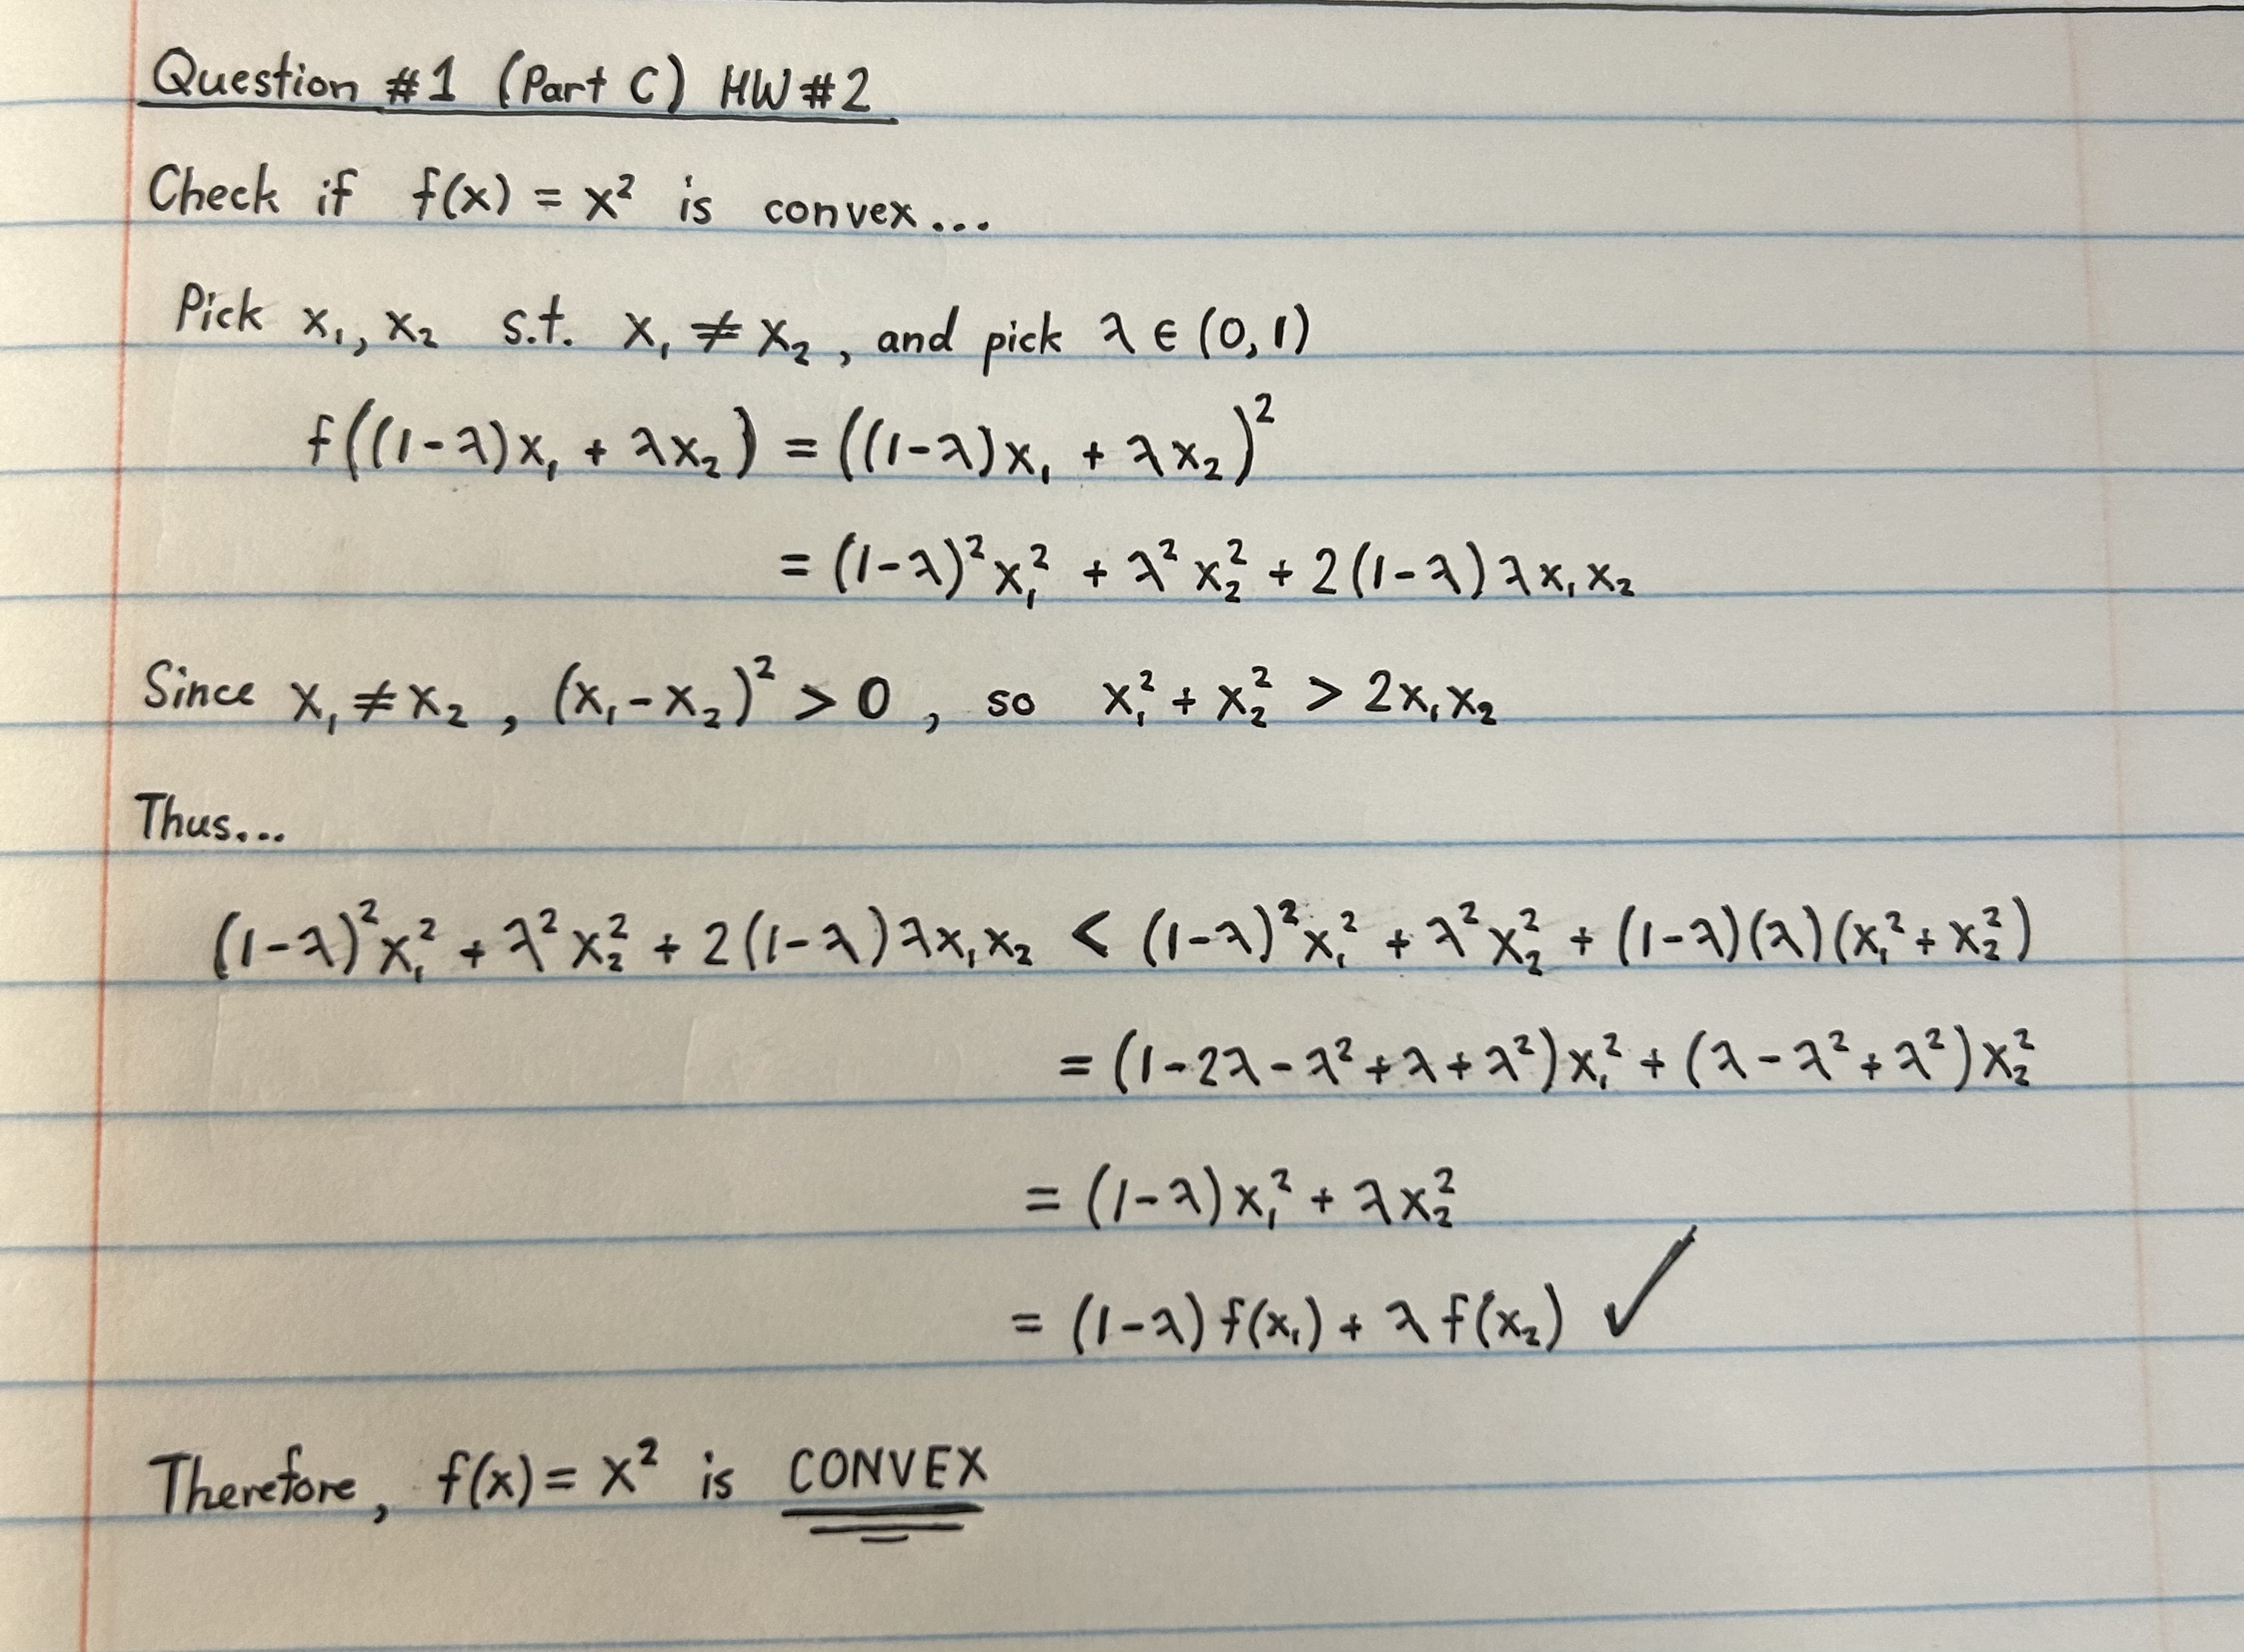 Question #1 (Part C) HW#2
Check if f(x) = x² is convex...
Pick x₁, x₂ s.t. x₁ ≠ x₂, and pick λ ∈ (0, 1)
f((1-λ)x₁ + λx₂) = ((1-λ)x₁ + λx₂)²
= (1-λ)²x₁² + λ²x₂² + 2(1-λ)λx₁x₂
Since x₁ ≠ x₂, (x₁-x₂)² > 0, so x₁² + x₂² > 2x₁x₂
Thus...
(1-λ)²x₁² + λ²x₂² + 2(1-λ)λx₁x₂ < (1-λ)²x₁² + λ²x₂² + (1-λ)(λ)(x₁² + x₂²)
= (1-2λ-λ²+λ+λ²)x₁² + (λ-λ²+λ²)x₂²
= (1-λ)x₁² + λx₂²
= (1-λ)f(x₁) + λf(x₂) ✓
Therefore, f(x) = x² is CONVEX